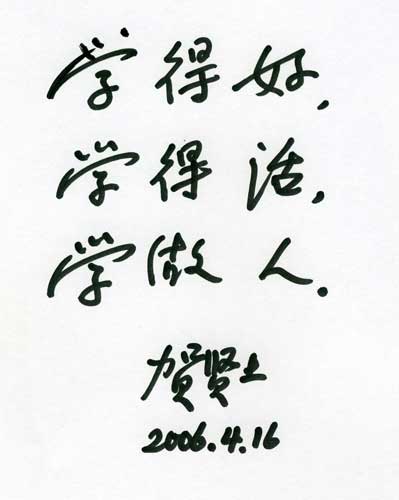 学得好,
学得活,
学做人.
贺贤土
2006.4.16